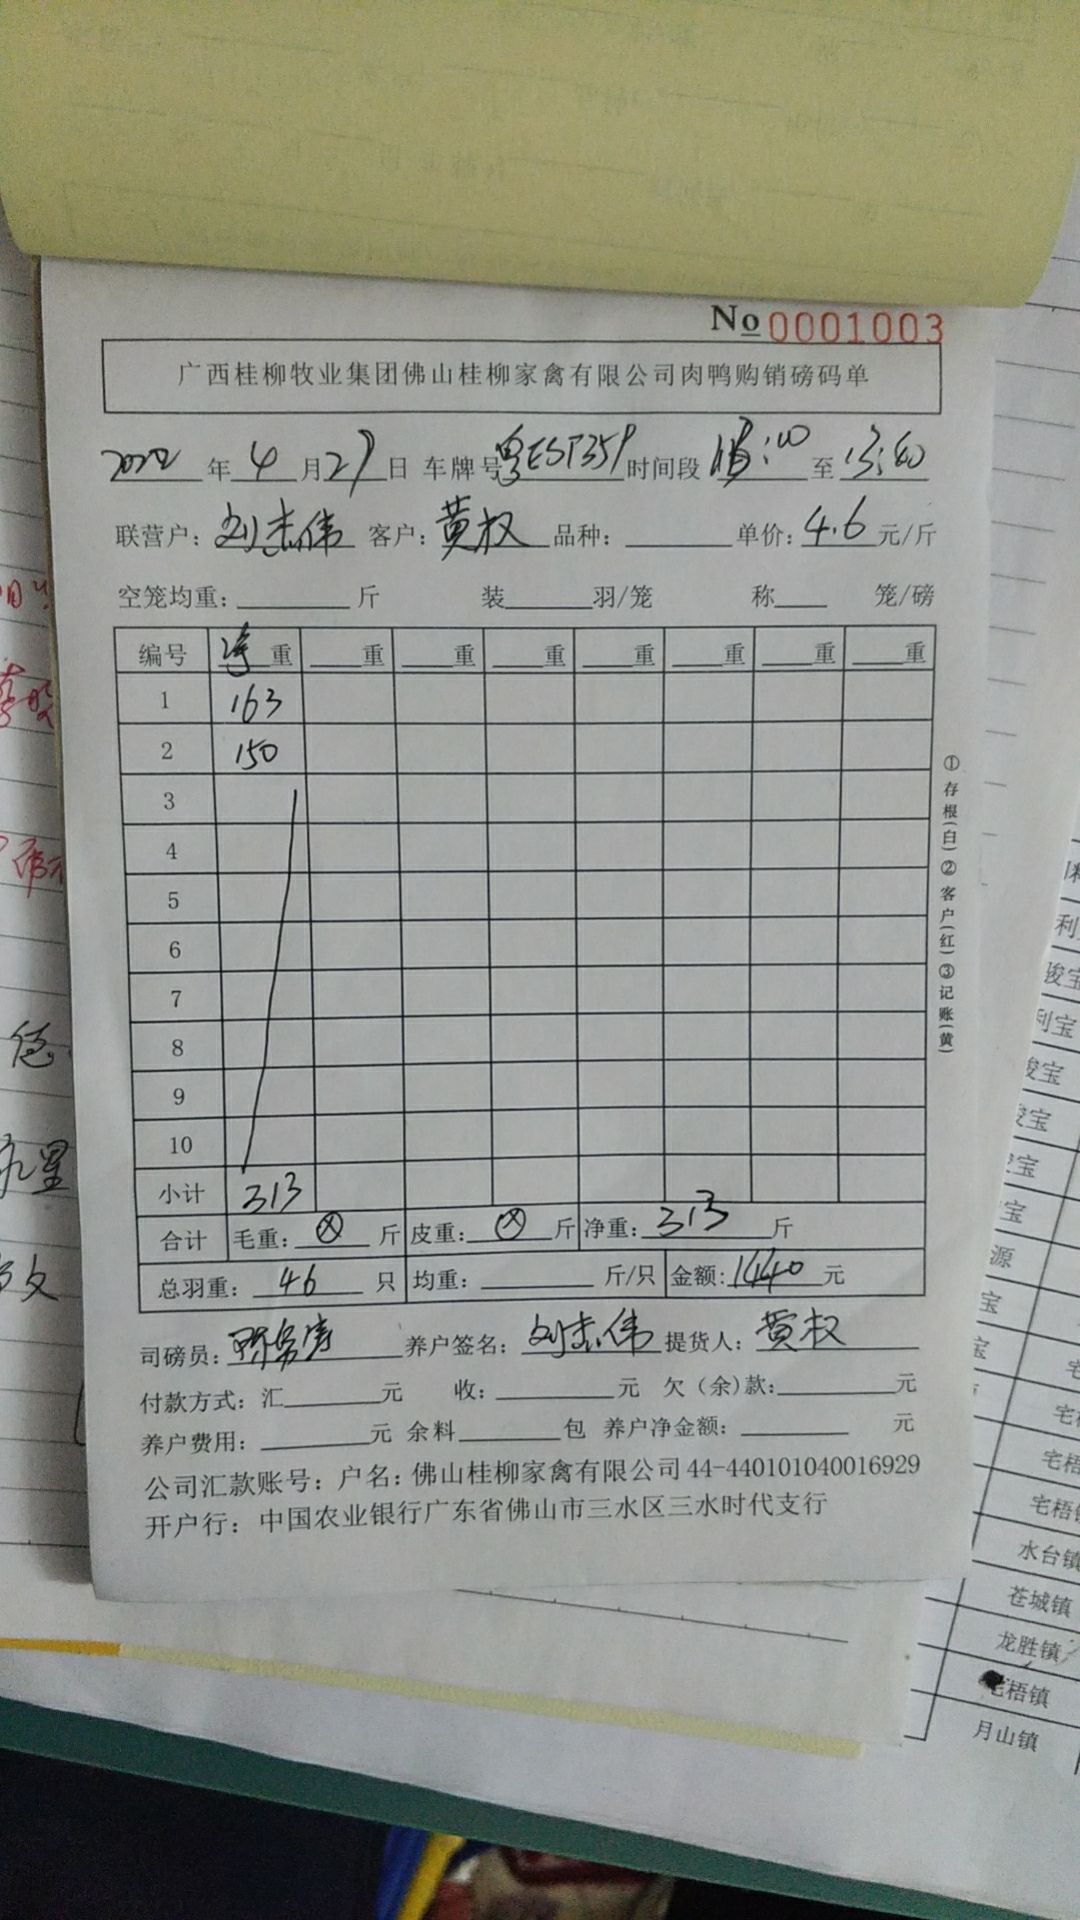 No 0001003
广西桂柳牧业集团佛山桂柳家禽有限公司肉鸭购销磅码单
2022 年 4 月 29 日 车牌号 时间段 至 13:40
联营户: 刘志伟 客户: 黄权 品种: 单价: 4.6 元/斤
空笼均重: 斤 装 羽/笼 称 笼/磅
编号 净重 重 重 重 重 重 重 重
1 163
2 150
3
4
5
6
7
8
9
10
小计 313
合计 毛重: ⊗ 斤 皮重: ⊗ 斤 净重: 313 斤
总羽重: 46 只 均重: 斤/只 金额: 1440 元
司磅员: 养户签名: 刘志伟 提货人: 黄权
付款方式: 汇 元 收: 元 欠(余)款: 元
养户费用: 元 余料 包 养户净金额: 元
公司汇款账号: 户名: 佛山桂柳家禽有限公司 44-440101040016929
开户行: 中国农业银行广东省佛山市三水区三水时代支行
①存根(白)②客户(红)③记账(黄)
利宝
骏宝
源
水台镇
苍城镇
龙胜镇
宅梧镇
月山镇